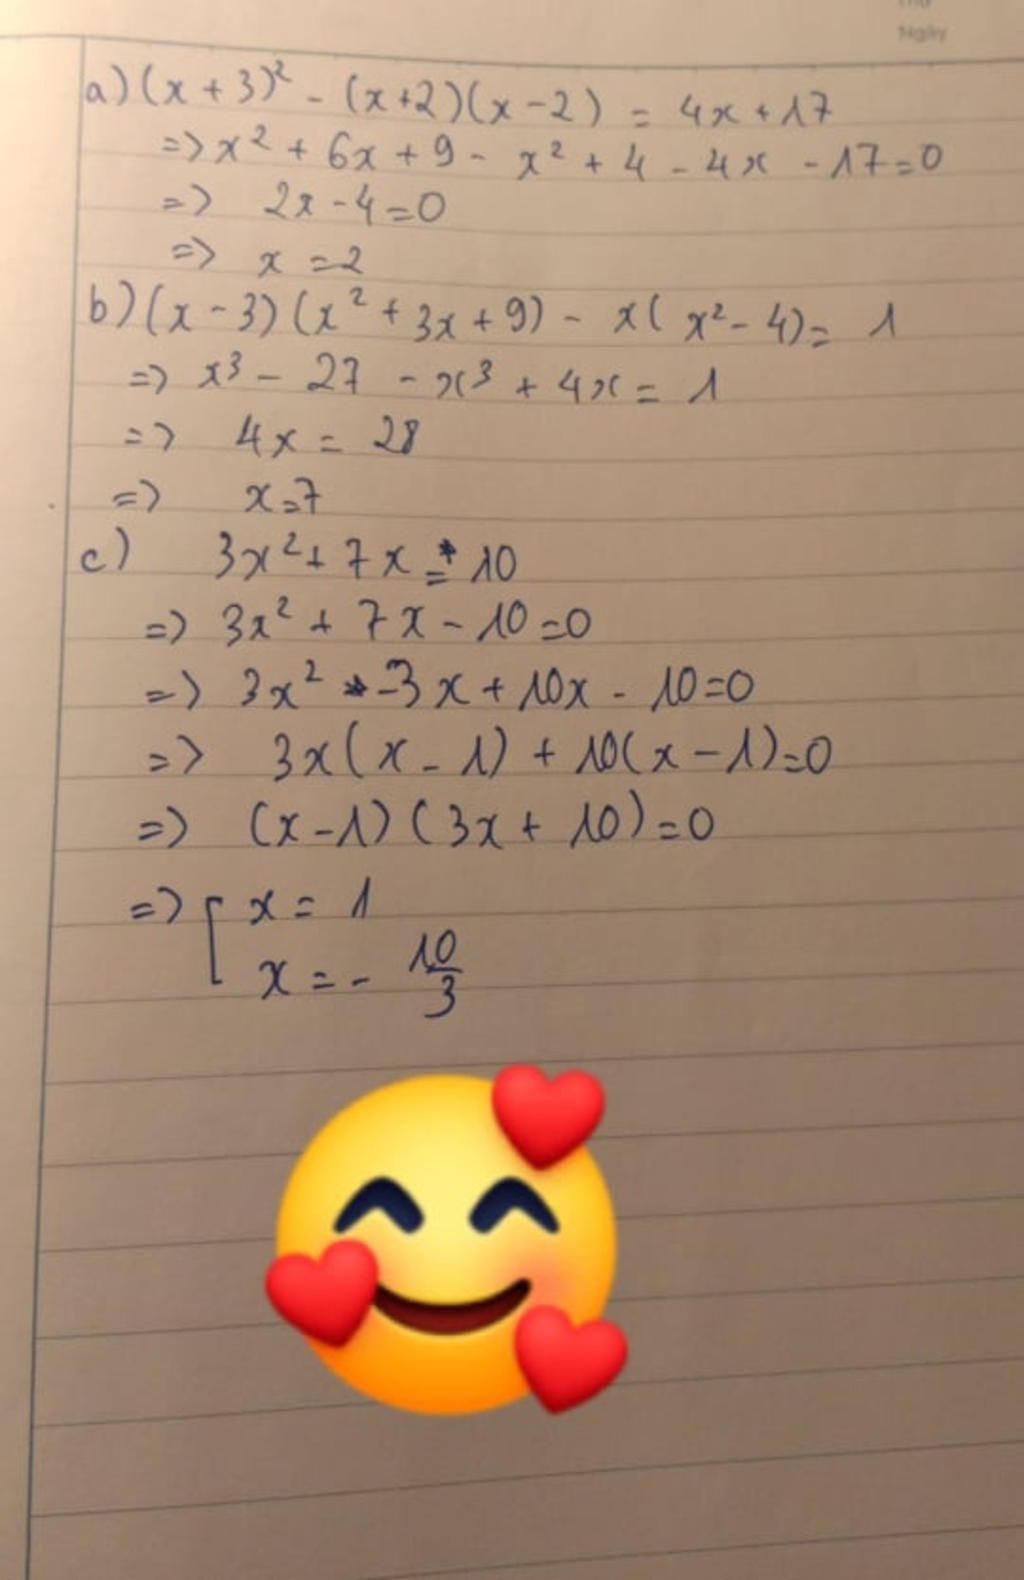 Ngày
a) (x + 3)² - (x+2)(x-2) = 4x + 17
=> x² + 6x + 9 - x² + 4 - 4x - 17 = 0
=> 2x - 4 = 0
=> x = 2
b) (x - 3)(x² + 3x + 9) - x(x² - 4) = 1
=> x³ - 27 - x³ + 4x = 1
=> 4x = 28
=> x = 7
c) 3x² + 7x = 10
=> 3x² + 7x - 10 = 0
=> 3x² - 3x + 10x - 10 = 0
=> 3x(x - 1) + 10(x - 1) = 0
=> (x - 1)(3x + 10) = 0
=> [ x = 1
x = - 10/3